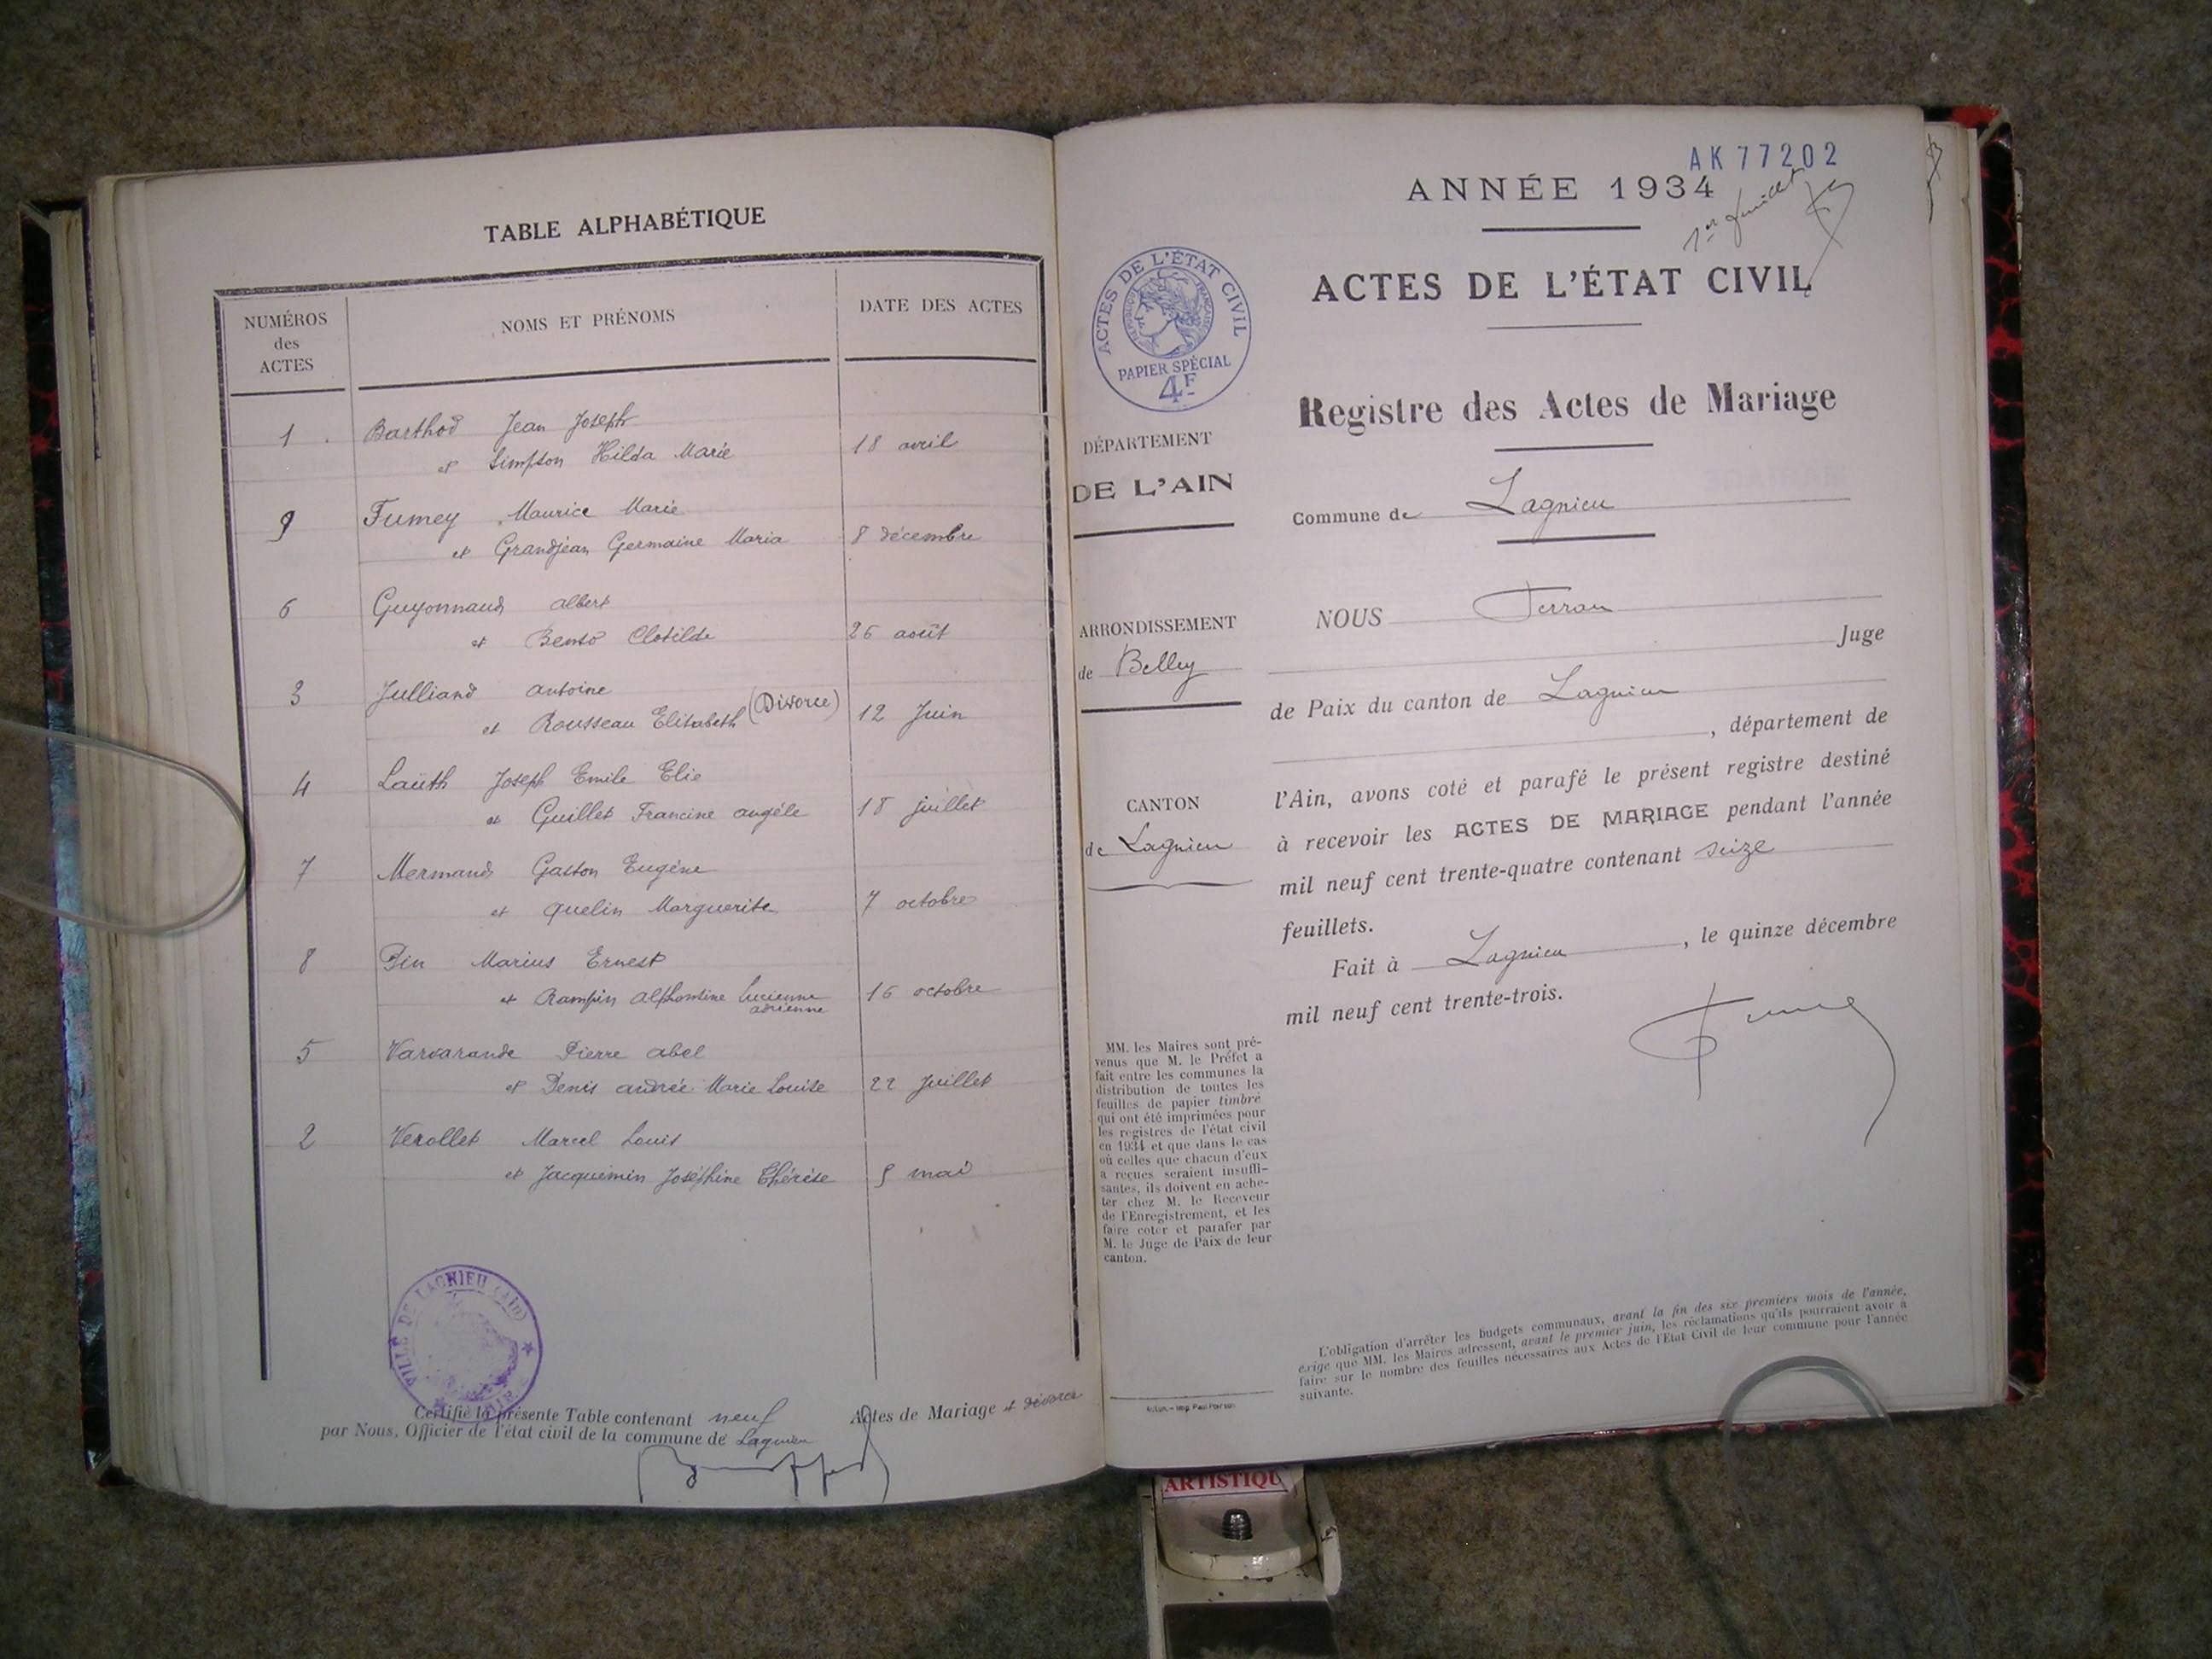 TABLE ALPHABÉTIQUE
NUMÉROS
des
ACTES
NOMS ET PRÉNOMS
DATE DES ACTES
1 Barthod Jean Joseph
et Simpson Hilda Marie 18 avril
9 Fumey Maurice Marie
et Grandjean Germaine Maria 8 décembre
6 Guyonnaud Albert
et Benso Clotilde 26 août
3 Julliand Antoine
et Rousseau Elisabeth (Divorce) 12 Juin
4 Laüth Joseph Emile Elie
et Guillet Francine Angèle 18 juillet
7 Mermand Gaston Eugène
et Quelin Marguerite 7 octobre
8 Pin Marius Ernest
et Rampin Alphonsine Lucienne 16 octobre
Adrienne
5 Varvarande Pierre Abel
et Denis Andrée Marie Louise 22 Juillet
2 Verollet Marcel Louis
et Jacquemin Joséphine Thérèse 5 mai
VILLE DE LAGNIEU (AIN)
Certifié la présente Table contenant neuf Actes de Mariage et divorce
par Nous, Officier de l'état civil de la commune de Lagnieu
AK77202
ANNÉE 1934
1er feuillet
ACTES DE L'ÉTAT CIVIL
ACTES DE L'ÉTAT CIVIL
RÉPUBLIQUE FRANÇAISE
PAPIER SPÉCIAL
4F
Registre des Actes de Mariage
DÉPARTEMENT
DE L'AIN
Commune de Lagnieu
ARRONDISSEMENT
de Belley
CANTON
de Lagnieu
NOUS
Juge
de Paix du canton de Lagnieu
, département de
l'Ain, avons coté et parafé le présent registre destiné
à recevoir les ACTES DE MARIAGE pendant l'année
mil neuf cent trente-quatre contenant seize
feuillets.
Fait à Lagnieu, le quinze décembre
mil neuf cent trente-trois.
MM. les Maires sont pré-
venus que M. le Préfet a
fait entre les communes la
distribution de toutes les
feuilles de papier timbré
qui ont été imprimées pour
les registres de l'état civil
en 1934 et que dans le cas
où celles que chacun d'eux
a reçues seraient insuffi-
santes, ils doivent en ache-
ter chez M. le Receveur
de l'Enregistrement, et les
faire coter et parafer par
M. le Juge de Paix de leur
canton.
L'obligation d'arrêter les budgets communaux, avant la fin des six premiers mois de l'année,
exige que MM. les Maires adressent, avant le premier juin, les réclamations qu'ils pourraient avoir à
faire sur le nombre des feuilles nécessaires aux Actes de l'Etat Civil de leur commune pour l'année
suivante.
ARTISTIQU